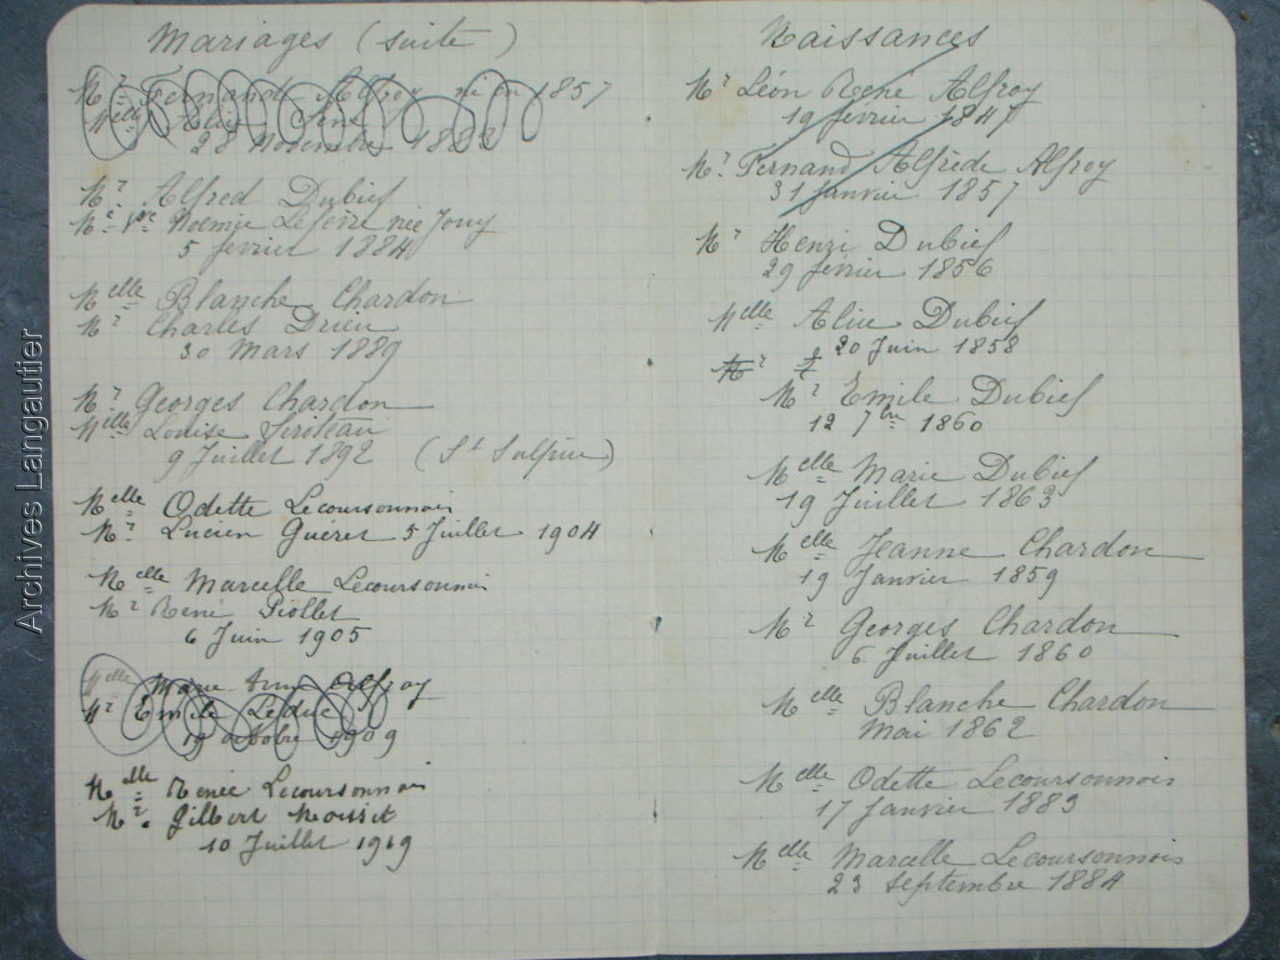 Archives Langautier
Mariages (suite)
Mr Fernand Alfroy né en 1857
Melle Alice
28 Novembre 1882
Mr Alfred Dubief
Me Vve Noemie Lefèvre née Jouy
5 fevrier 1884
Melle Blanche Chardon
Mr Charles Drieu
30 Mars 1889
Mr Georges Chardon
Melle Louise Siroteau
9 Juillet 1892 (St Sulpice)
Melle Odette Lecoursonnois
Mr Lucien Guéret 5 Juillet 1904
Melle Marcelle Lecoursonnois
Mr René Piollet
6 Juin 1905
Melle Marie Anne Alfroy
Mr Emile Leduc
19 octobre 1909
Melle Renée Lecoursonnois
Mr Gilbert Moissit
10 Juillet 1919
Naissances
Mr Léon René Alfroy
19 fevrier 1847
Mr Fernand Alfrède Alfroy
31 Janvier 1857
Mr Henri Dubief
29 février 1856
Melle Alice Dubief
20 Juin 1858
Mr
Mr Emile Dubief
12 7bre 1860
Melle Marie Dubief
19 Juillet 1863
Melle Jeanne Chardon
19 Janvier 1859
Mr Georges Chardon
6 Juillet 1860
Melle Blanche Chardon
Mai 1862
Melle Odette Lecoursonnois
17 Janvier 1883
Melle Marcelle Lecoursonnois
23 Septembre 1884